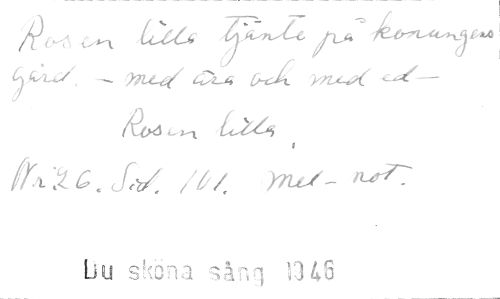 Rosen lilla tjänte på konungens
gård. – med ära och med ed –
Rosen lilla.
Nr 26. Sid. 101. Mel – not.
Du sköna sång 1946